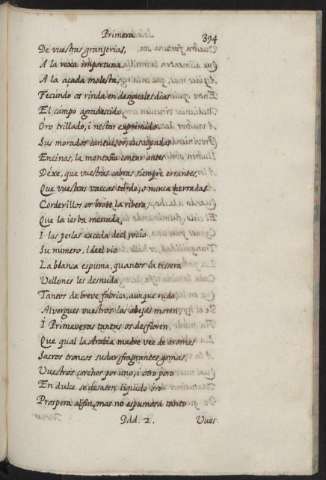 Primera.
394
De vuestras granjerias,
A la reja importuna
A la açada molesta,
Fecundo os rinda en desiguales dias
El campo agradecido
Oro trillado, i nectar exprimido.
Sus morados cantuessos, sus copadas
Encinas, la montaña contar antes
Dexe, que vuestras cabras siempre errantes,
Que vuestras vaccas tarde, o nunca herradas
Corderillos os brote la ribera
Que la ierba menuda,
I las perlas exceda del rocío
Su numero, i del rio
La blanca espuma, quantos la tisera
Vellones les desnuda
Tantos de breve fabrica, aunque ruda
Alvergues vuestros las abejas moren
I Primaveras tantas os desfloren
Que qual la Arabia madre vee de aromas
Sacros troncos sudar fragrantes gomas
Vuestros corchos por uno, i otro poro
En dulce se desaten liquido oro
Prospera alfin, mas no espumosa tanto
Ddd. 2.
Vues